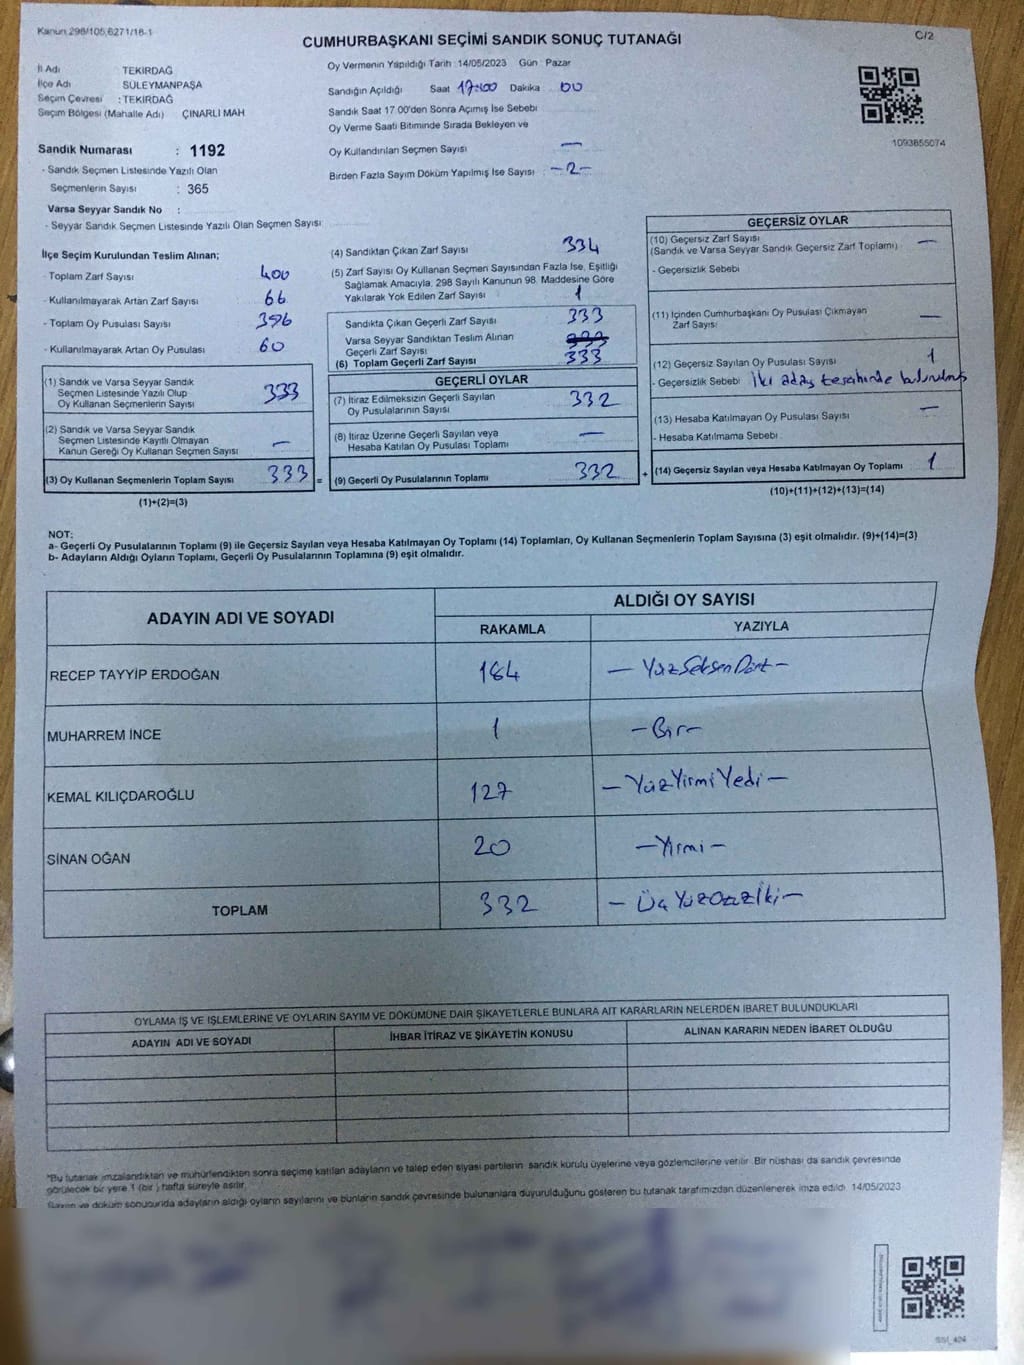 Kanun 298/105,6271/16-1
C/2
CUMHURBAŞKANI SEÇİMİ SANDIK SONUÇ TUTANAĞI
İl Adı TEKİRDAĞ
İlçe Adı SÜLEYMANPAŞA
Seçim Çevresi : TEKİRDAĞ
Seçim Bölgesi (Mahalle Adı) ÇINARLI MAH
Oy Vermenin Yapıldığı Tarih :14/05/2023 Gün : Pazar
Sandığın Açıldığı Saat 17:00 Dakika 00
Sandık Saat 17.00'den Sonra Açımış İse Sebebi
Oy Verme Saati Bitiminde Sırada Bekleyen ve
Oy Kullandırılan Seçmen Sayısı —
Birden Fazla Sayım Döküm Yapılmış İse Sayısı : -2-
1093855074
Sandık Numarası : 1192
- Sandık Seçmen Listesinde Yazılı Olan
Seçmenlerin Sayısı : 365
Varsa Seyyar Sandık No :
- Seyyar Sandık Seçmen Listesinde Yazılı Olan Seçmen Sayısı
İlçe Seçim Kurulundan Teslim Alınan;
- Toplam Zarf Sayısı 400
- Kullanılmayarak Artan Zarf Sayısı 66
- Toplam Oy Pusulası Sayısı 396
- Kullanılmayarak Artan Oy Pusulası 60
(1) Sandık ve Varsa Seyyar Sandık
Seçmen Listesinde Yazılı Olup
Oy Kullanan Seçmenlerin Sayısı 333
(2) Sandık ve Varsa Seyyar Sandık
Seçmen Listesinde Kayıtlı Olmayan
Kanun Gereği Oy Kullanan Seçmen Sayısı —
(3) Oy Kullanan Seçmenlerin Toplam Sayısı 333 =
(1)+(2)=(3)
(4) Sandıktan Çıkan Zarf Sayısı 334
(5) Zarf Sayısı Oy Kullanan Seçmen Sayısından Fazla İse, Eşitliği
Sağlamak Amacıyla, 298 Sayılı Kanunun 98. Maddesine Göre
Yakılarak Yok Edilen Zarf Sayısı 1
Sandıkta Çıkan Geçerli Zarf Sayısı 333
Varsa Seyyar Sandıktan Teslim Alınan
Geçerli Zarf Sayısı
(6) Toplam Geçerli Zarf Sayısı 333
GEÇERLİ OYLAR
(7) İtiraz Edilmeksizin Geçerli Sayılan
Oy Pusulalarının Sayısı 332
(8) İtiraz Üzerine Geçerli Sayılan veya
Hesaba Katılan Oy Pusulası Toplamı —
(9) Geçerli Oy Pusulalarının Toplamı 332 +
GEÇERSİZ OYLAR
(10) Geçersiz Zarf Sayısı —
(Sandık ve Varsa Seyyar Sandık Geçersiz Zarf Toplamı)
- Geçersizlik Sebebi
(11) İçinden Cumhurbaşkanı Oy Pusulası Çıkmayan
Zarf Sayısı —
(12) Geçersiz Sayılan Oy Pusulası Sayısı 1
- Geçersizlik Sebebi İki aday tercihinde bulunulmuş
(13) Hesaba Katılmayan Oy Pusulası Sayısı —
- Hesaba Katılmama Sebebi :
(14) Geçersiz Sayılan veya Hesaba Katılmayan Oy Toplamı 1
(10)+(11)+(12)+(13)=(14)
NOT:
a- Geçerli Oy Pusulalarının Toplamı (9) ile Geçersiz Sayılan veya Hesaba Katılmayan Oy Toplamı (14) Toplamları, Oy Kullanan Seçmenlerin Toplam Sayısına (3) eşit olmalıdır. (9)+(14)=(3)
b- Adayların Aldığı Oyların Toplamı, Geçerli Oy Pusulalarının Toplamına (9) eşit olmalıdır.
ADAYIN ADI VE SOYADI
ALDIĞI OY SAYISI
RAKAMLA YAZIYLA
RECEP TAYYİP ERDOĞAN 184 — YüzSeksenDört —
MUHARREM İNCE 1 — Bir —
KEMAL KILIÇDAROĞLU 127 — YüzYirmiYedi —
SİNAN OĞAN 20 — Yirmi —
TOPLAM 332 — ÜçYüzOtuzİki —
OYLAMA İŞ VE İŞLEMLERİNE VE OYLARIN SAYIM VE DÖKÜMÜNE DAİR ŞİKAYETLERLE BUNLARA AİT KARARLARIN NELERDEN İBARET BULUNDUKLARI
ADAYIN ADI VE SOYADI İHBAR İTİRAZ VE ŞİKAYETİN KONUSU ALINAN KARARIN NEDEN İBARET OLDUĞU
*Bu tutanak imzalandıktan ve mühürlendikten sonra seçime katılan adayların ve talep eden siyasi partilerin sandık kurulu üyelerine veya gözlemcilerine verilir. Bir nüshası da sandık çevresinde
görülecek bir yere 1 (bir ) hafta süreyle asılır.
Sayım ve döküm sonucunda adayların aldığı oyların sayılarını ve bunların sandık çevresinde bulunanlara duyurulduğunu gösteren bu tutanak tarafımızdan düzenlenerek imza edildi 14/05/2023